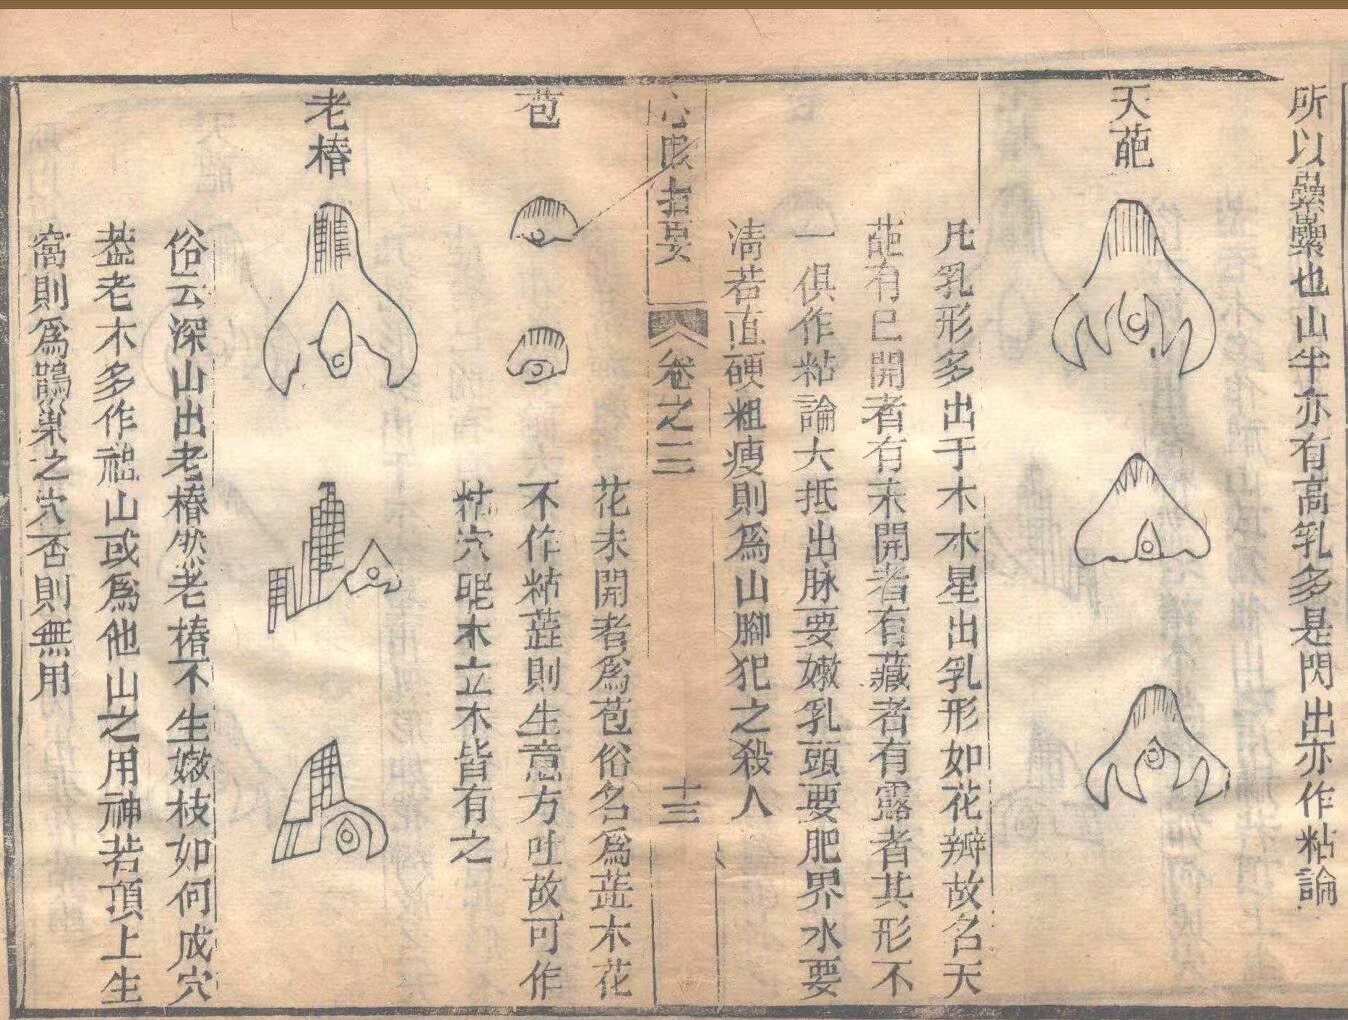 所以纍纍也山半亦有高乳多是閃出亦作粘論
天葩
凡乳形多出于木木星出乳形如花瓣故名天
葩有已開者有未開者有藏者有露者其形不
一俱作粘論大抵出脉要嫩乳頭要肥界水要
清若直硬粗瘦則為山腳犯之殺人
心眼指要
卷之三
十三
苞
花未開者為苞俗名為蕋木花
不作粘蕋則生意方吐故可作
粘穴眠木立木皆有之
老椿
俗云深山出老椿然老椿不生嫩枝如何成穴
葢老木多作祖山或為他山之用神若頂上生
窩則為鵲巢之穴否則無用